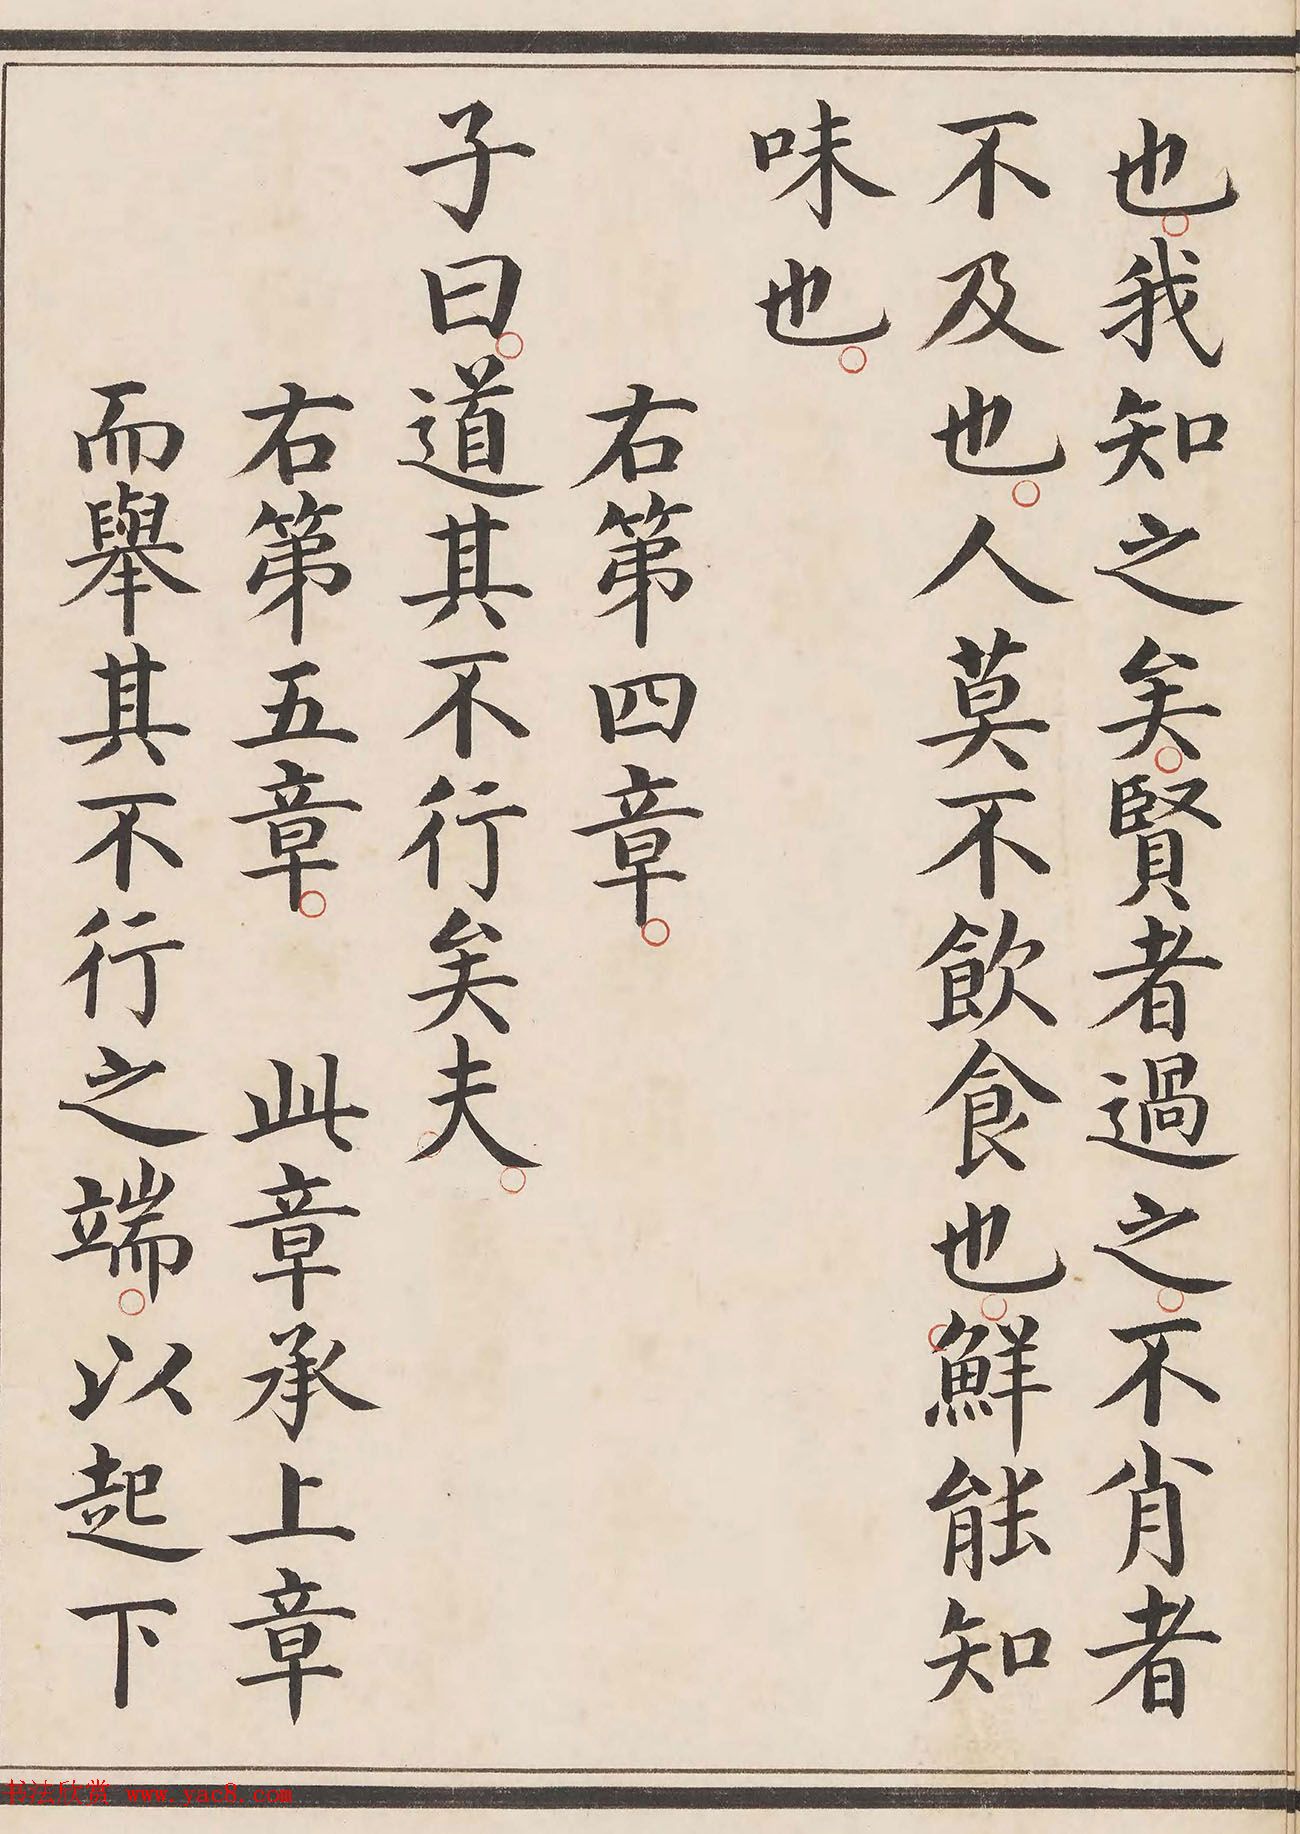 也。我知之矣。賢者過之。不肖者
不及也。人莫不飲食也。鮮能知
味也。
右第四章。
子曰。道其不行矣夫。
右第五章。 此章承上章
而舉其不行之端。以起下
书法欣赏 www.yac8.com